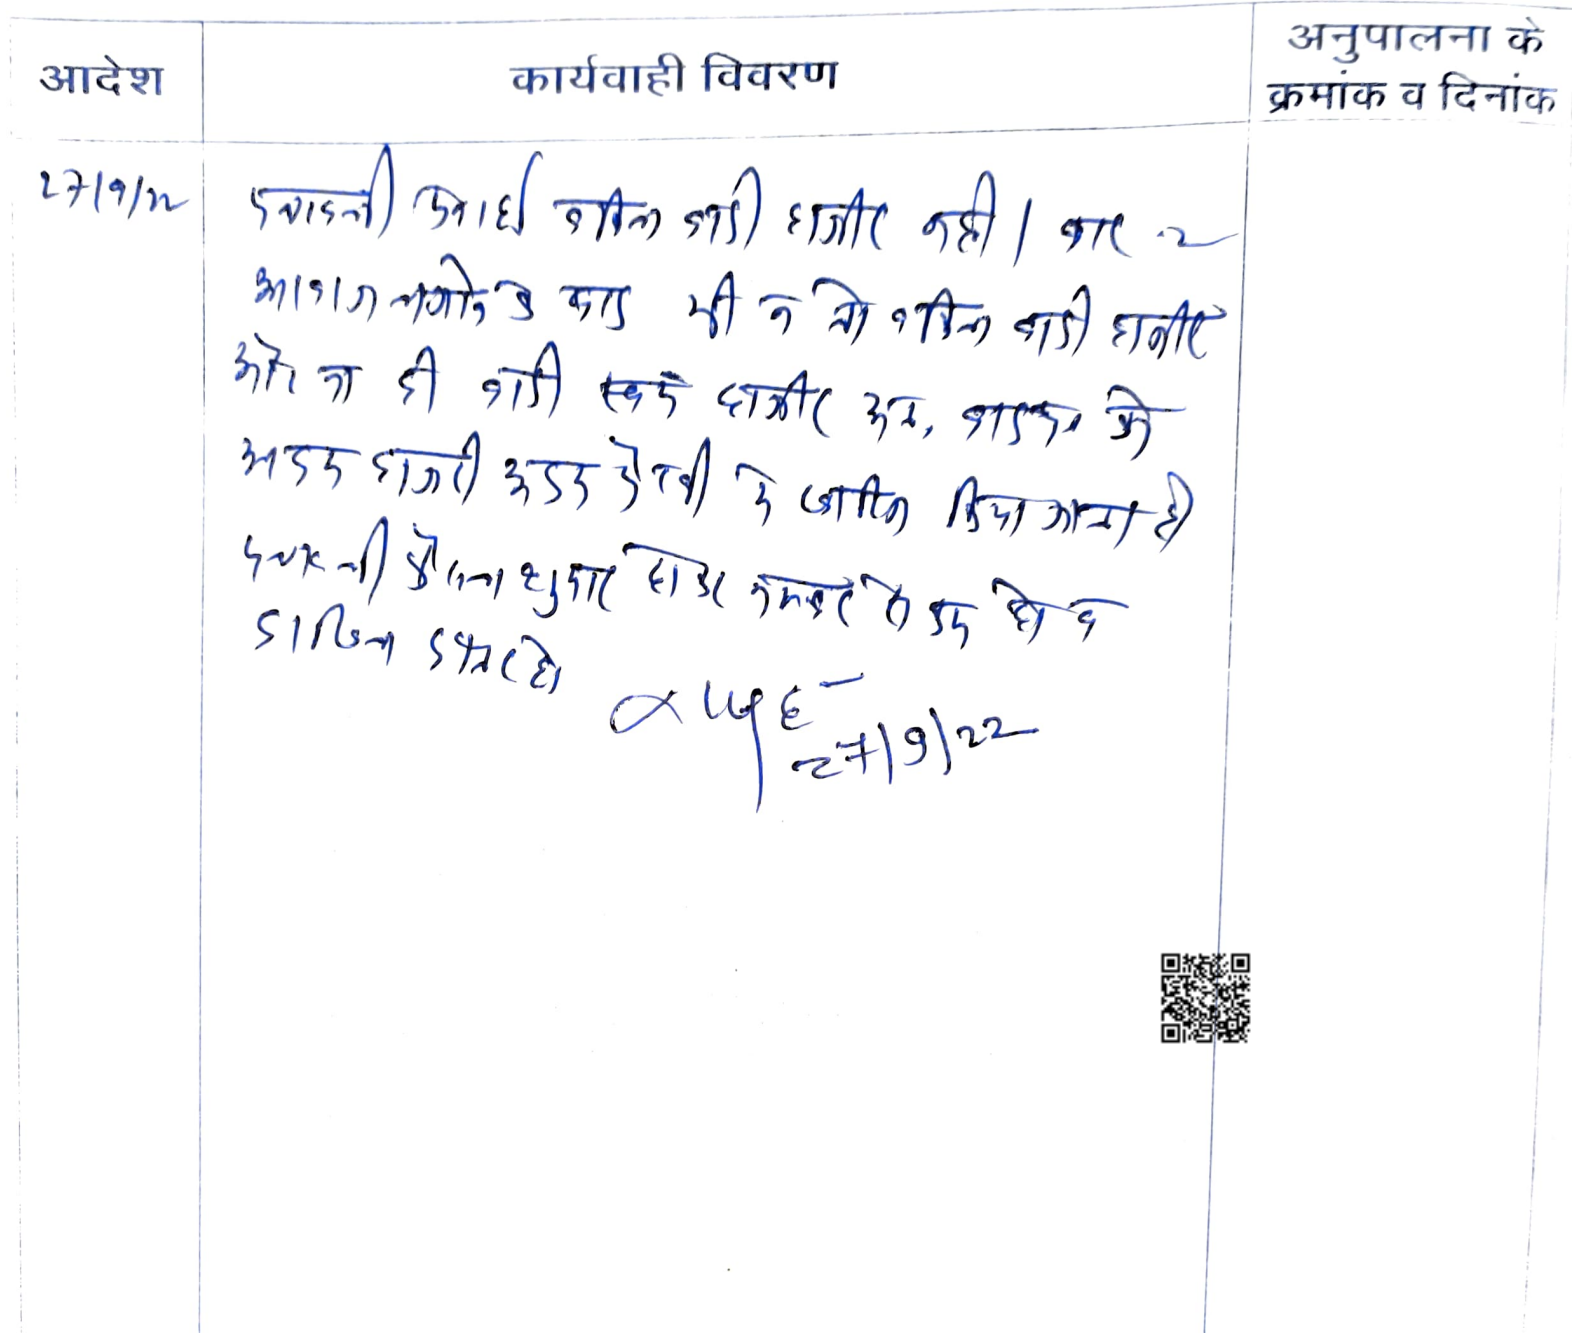 आदेश
कार्यवाही विवरण
अनुपालना के
क्रमांक व दिनांक
27/9/22
पत्रावली वकील वादी हाजीर नहीं। बार २
आवाज लगाने के बाद भी न तो वकील वादी हाजीर
और ना ही वादी स्वयं हाजीर अतः वादपत्र को
अदम हाजरी अदम पैरवी में खारिज किया जाता है
पत्रावली फैसल शुमार होकर नम्बर से कम हो व
दाखिल दफ्तर हो
27/9/22